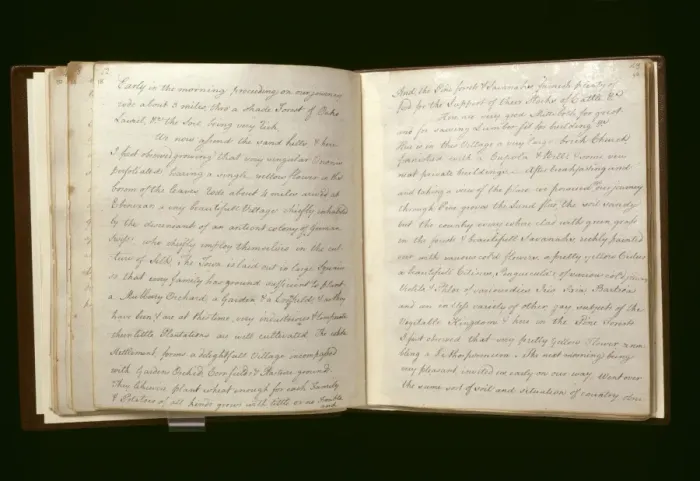 Early in the morning proceeding on our journey
rode about 3 miles thro a shade Forest of Oaks
Laurel, &c the Soil being very rich
We now assend the sand hills & here
I first observed growing that very singular
perfoliated bearing a single yellow flower in the
bosom of the leaves Rode about miles arived at
Ebenezar a very beautifull Village chiefly inhabited
by the decendant of an antient colony of German
who chiefly employ themselves in the cul-
ture of Silk. The Town is laid out in large Squares
so that every family has ground sufficient to plant
a Mulberry Orchard, a Garden & a Cornfield, & as they
have been, & are at this time, very industrious &
their little Plantations are well cultivated. The whole
Settlement, forms a delightfull Village incompassed
with Gardens Orchads Cornfields & Pasture ground.
They likewise plant wheat enough for each Family
& Potatoes of all kinds grows with little or no trouble
and
And, the Pine forests & Savanahs furnish plenty of
food for the Support of their Stocks of Cattle &c
Here are very good Mills both for grist
and for sawing Lumber fit for building &c
Here in this Village a very large Brick Church
furnished with a Cupola & Bells & some very
neat private buildings. After breakfasting
and taking a view of the place, we pursued our journey
through Pine groves the Land flat, the soil sandy
but the country every where clad with green grass
in the forests & beautifull Savanahs richly painted
over with various cold flowers, a pretty yellow
a beautifull Pinguicula's of various
Violets & Phlox of various Iris Bartsia
and an endless variety of other gay subjects of the
Vegitable Kingdom & here in the Pine Forests
I first observed that very pretty yellow Flower
The next morning being
very pleasant invited us early on our way. Went over
the same sort of soil and situation of country